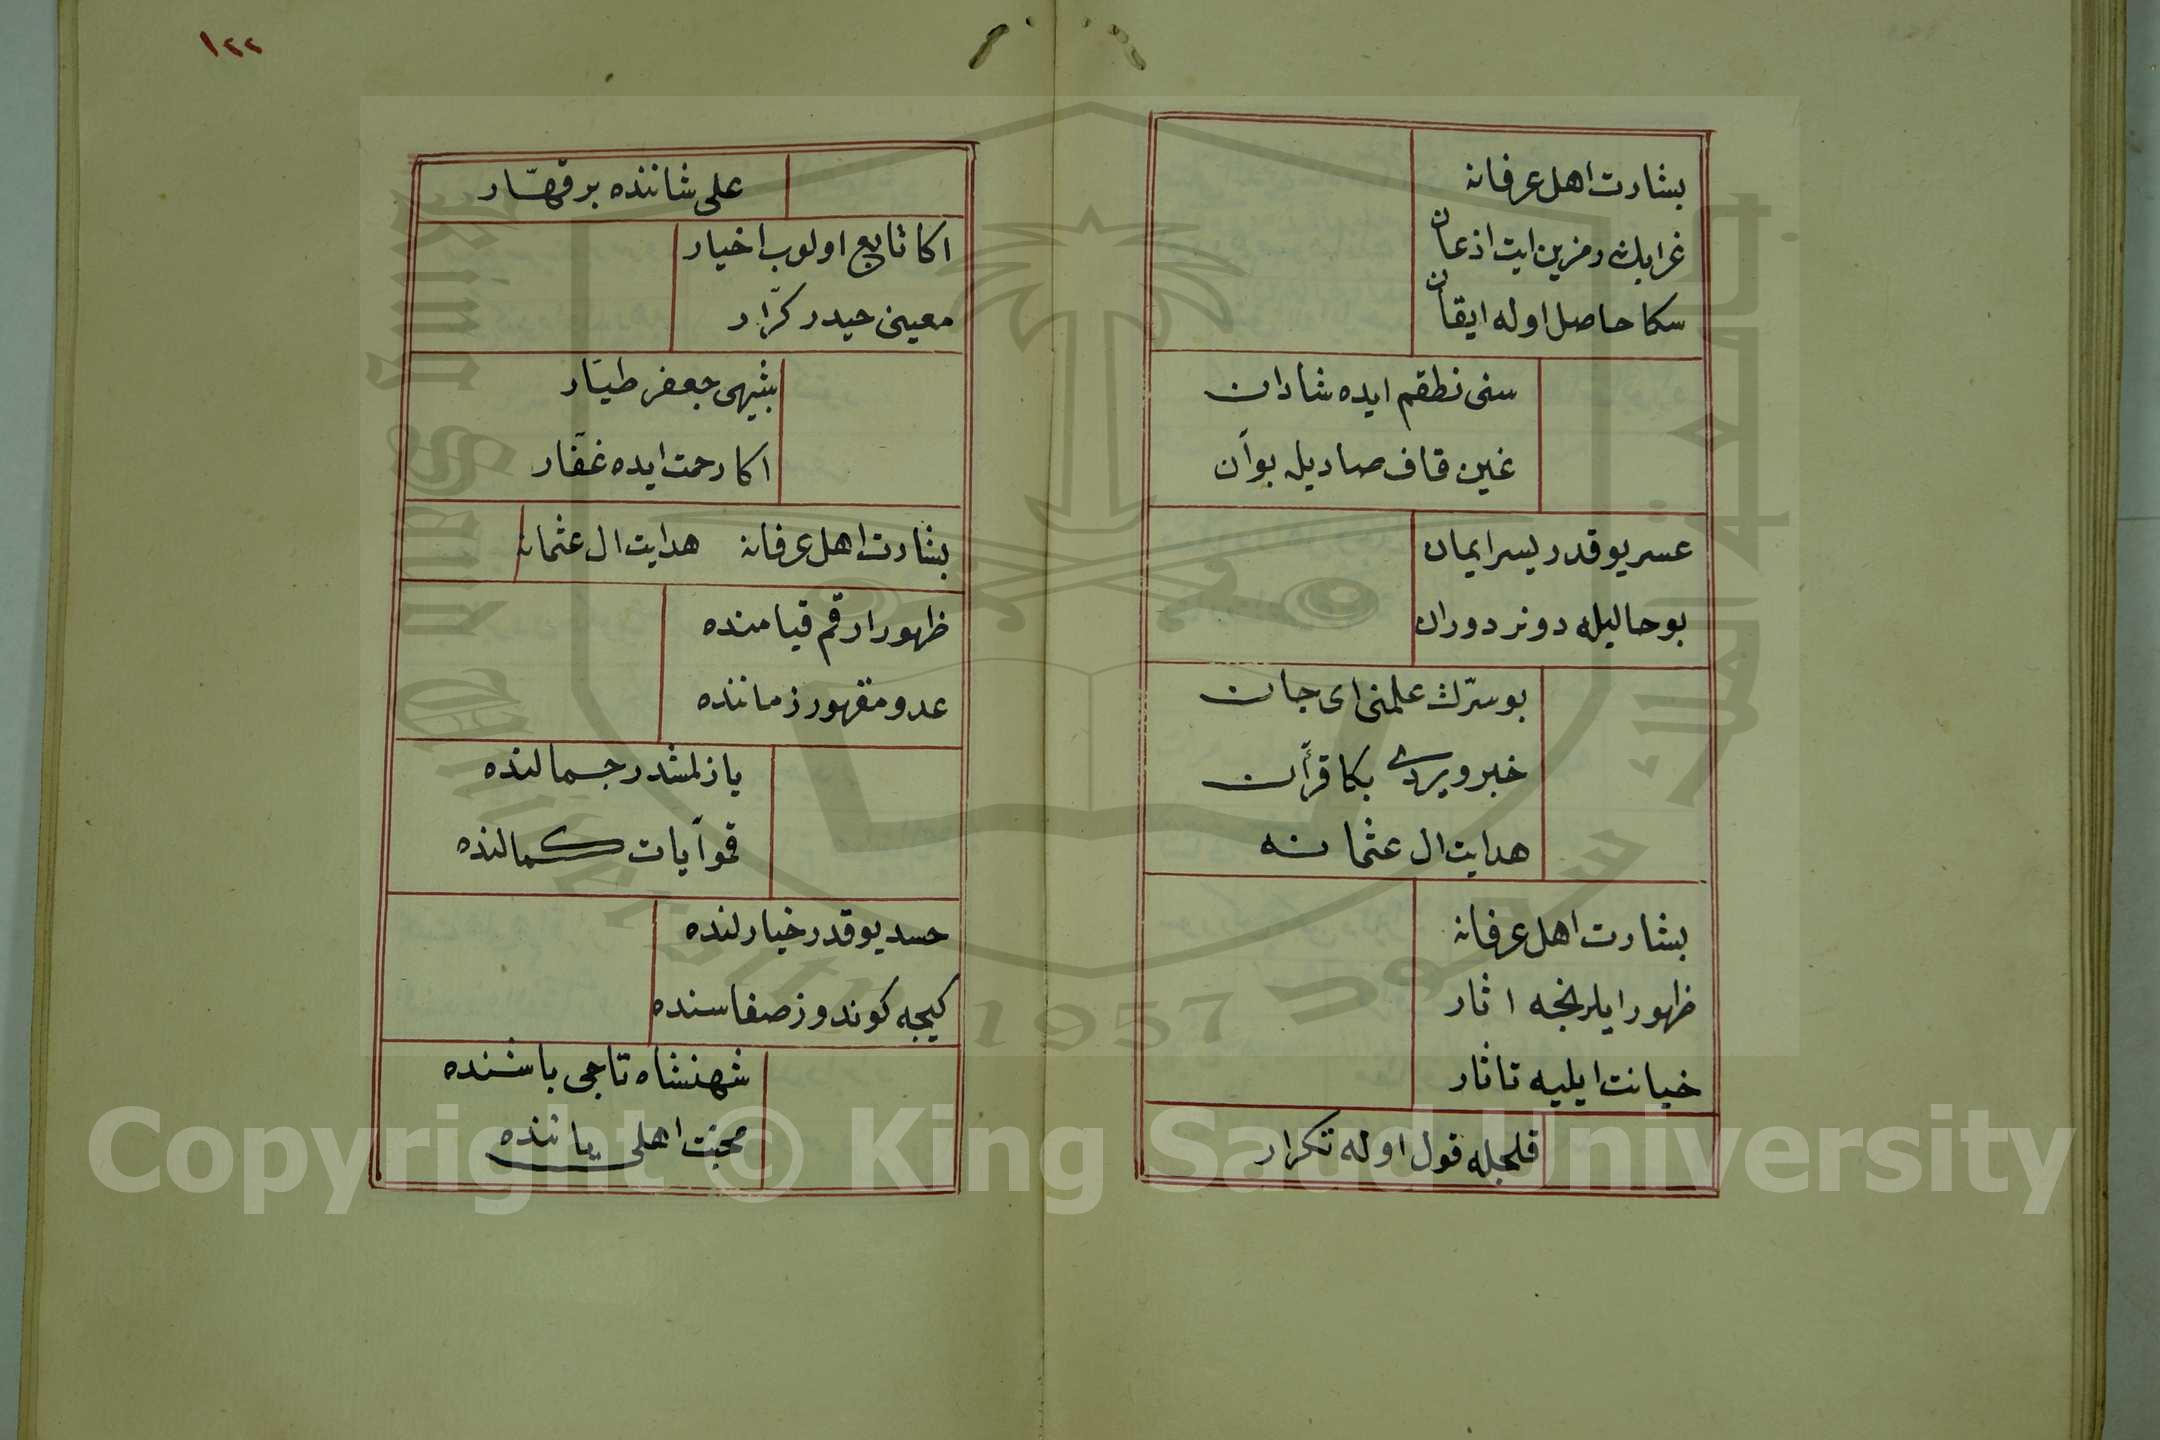 بشارت اهل عرفانه
غرابك رمزين ايت اذعان
سكا حاصل اوله ايقان
سنى نطقم ايده شادان
غين قاف صاد يله بوآن
عسر يوقدر يسر ايمان
بو حاليله دونر دوران
بو سرّك علمنى اى جان
خبر ويردى بكا قرآن
هدايت ال عثمانه
بشارت اهل عرفانه
ظهور ايلر نجه اثار
خيانت ايليه تاتار
قلجله قول اوله تكرار
١٢٢
على شاننده بر قهّار
اكا تابع اولوب اخيار
معينى حيدر كرّار
شبيهى جعفر طيّار
اكا رحمت ايده غفّار
بشارت اهل عرفانه هدايت ال عثمانه
ظهور ارقم قيامنده
عدو مقهور زماننده
يازلمشدر جمالنده
قمو آيات كمالنده
حسد يوقدر خيارلنده
كيجه كوندوز صفاسنده
شهنشاه تاجى باشنده
محبّت اهلى ياننده
Copyright © King Saud University
1957